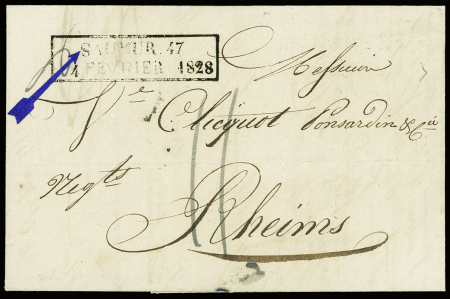 SAUMUR. 47
4 FEVRIER 1828
Messieurs
Ve Clicquot Ponsardin & Cie
Negts
Rheims
11